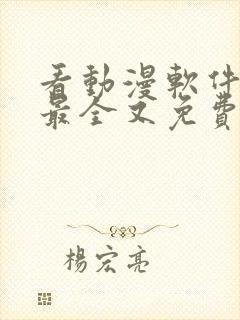 看動漫軟件
最全又免費
楊宏亮